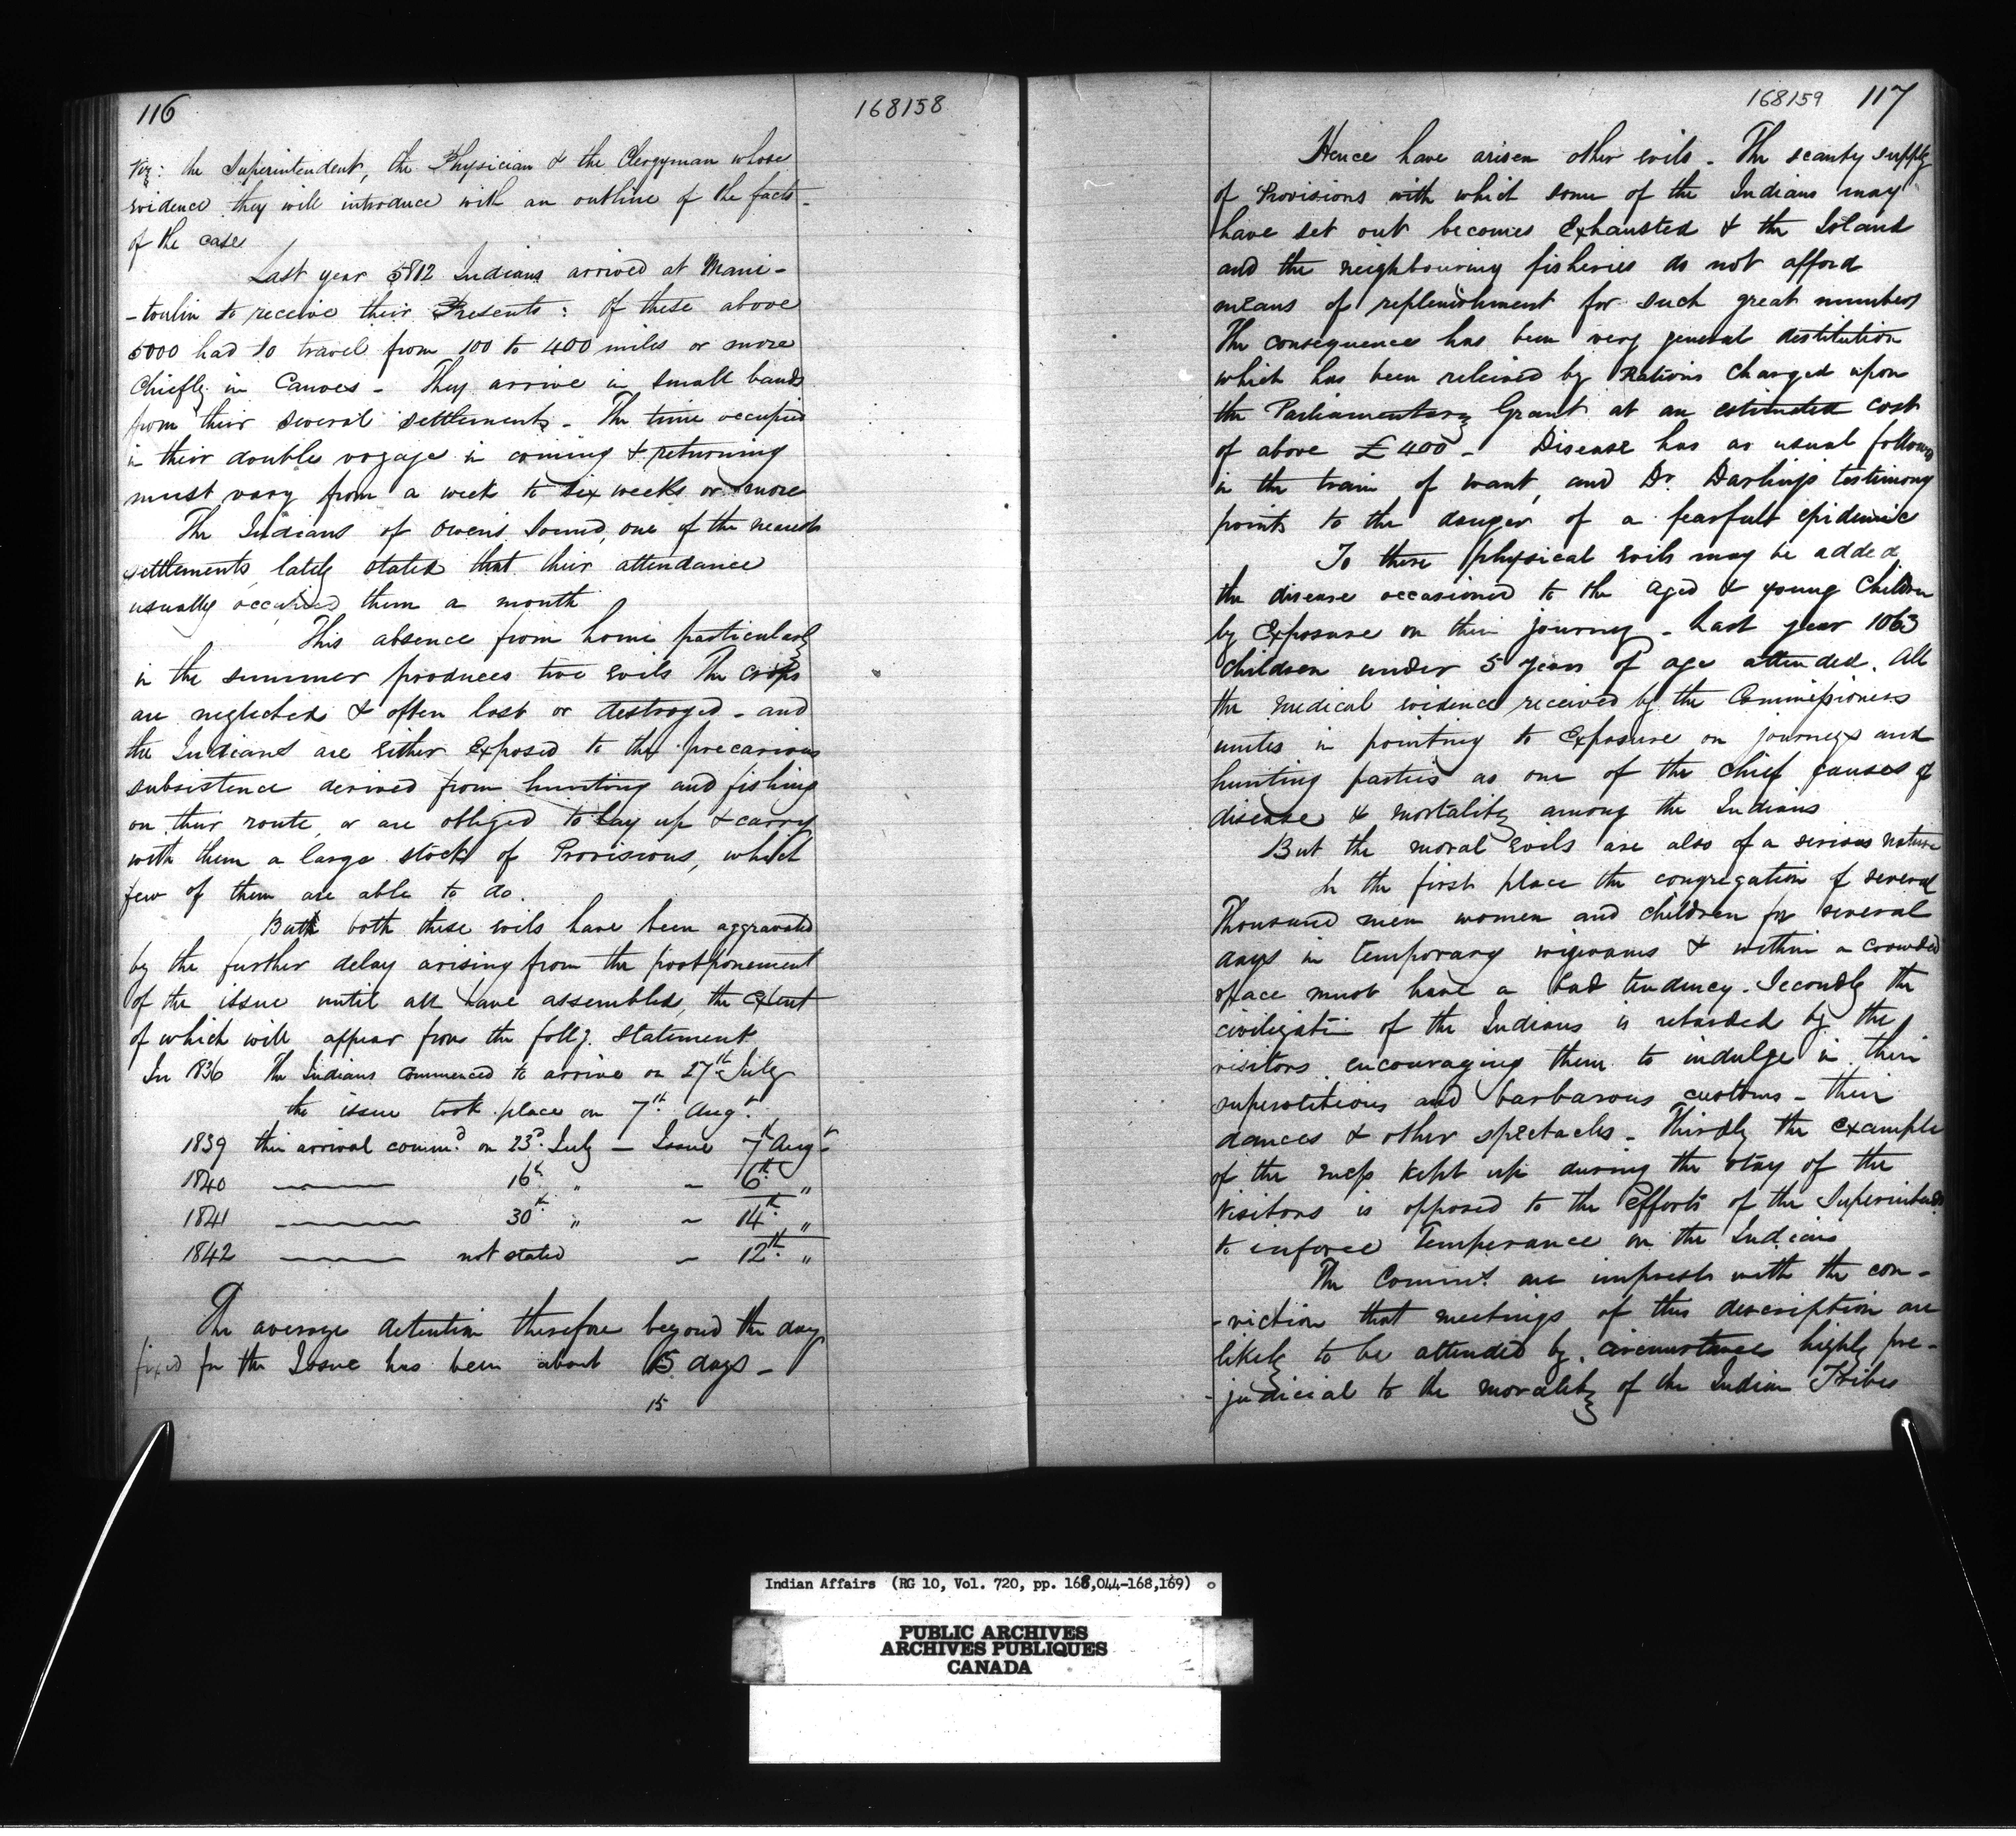 116
168158
Viz: the Superintendent, the Physician & the Clergyman whose
evidence they will introduce with an outline of the facts
of the case
Last year 5812 Indians arrived at Mani-
-toulin to receive their Presents: Of these above
5000 had to travel from 100 to 400 miles or more
Chiefly in Canoes - They arrive in small bands
from their several settlements - The time occupied
in their double voyage in coming & returning
must vary from a week to six weeks or more
The Indians of Owen's Sound, one of the nearest
settlements lately stated that their attendance
usually occupied them a month
This absence from home particularly
in the summer produces two evils The crops
are neglected & often lost or destroyed - and
the Indians are either Exposed to the precarious
subsistence derived from hunting and fishing
on their route, or are obliged to lay up & carry
with them a large stock of Provisions, which
few of them are able to do.
But both these evils have been aggravated
by the further delay arising from the postponement
of the issue until all have assembled, the extent
of which will appear from the follg. Statement
In 1836 The Indians commenced to arrive on 27th July
the issue took place on 7th Augt.
1839 their arrival commd. on 23d. July - Issue 7th Augt.
1840 16th " - 6th "
1841 30th " - 14th "
1842 not stated - 12th "
The average detention therefore beyond the day
fixed for the Issue has been about 15 days -
15
168159 117
Hence have arisen other evils - The scanty supply
of Provisions with which some of the Indians may
have set out becomes Exhausted & the Island
and the neighbouring fisheries do not afford
means of replenishment for such great numbers
The consequence has been very general destitution
which has been relieved by Rations Charged upon
the Parliamentary Grant at an estimated cost
of above £400 - Disease has as usual followed
in the train of want, and Dr. Darling's testimony
points to the danger of a fearful epidemic
To these physical evils may be added
the disease occasioned to the aged & young Children
by Exposure on their journey - Last year 1063
Children under 5 years of age attended. All
the medical evidence received by the Commissioners
unites in pointing to Exposure on journeys and
hunting parties as one of the chief causes of
disease & mortality among the Indians
But the moral Evils are also of a serious nature
In the first place the congregation of several
Thousand men women and children for several
days in temporary wigwams & within a crowded
space must have a bad tendency. Secondly the
civilizati- of the Indians is retarded by the
visitors encouraging them to indulge in their
superstitious and barbarous customs - their
dances & other spectacles - Thirdly the example
of the mess kept up during the stay of the
Visitors is opposed to the Efforts of the Superintendt
to enforce Temperance on the Indians
The Commrs. are imprest with the con-
-viction that meetings of this description are
likely to be attended by circumstances highly pre-
-judicial to the morality of the Indian Tribes
Indian Affairs (RG 10, Vol. 720, pp. 168,044-168,169)
PUBLIC ARCHIVES
ARCHIVES PUBLIQUES
CANADA